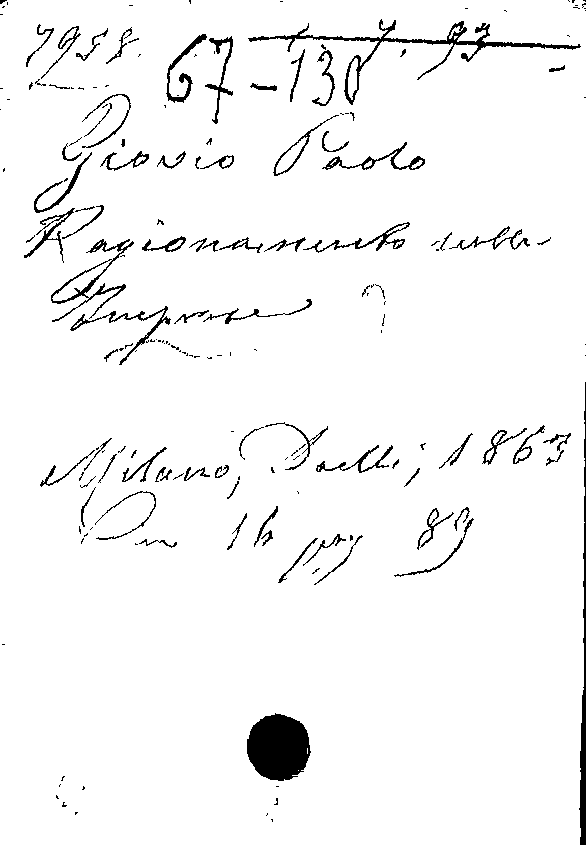 7958.
67-130
Giovio Paolo
Ragionamento sulle
Imprese
Milano, Daelli, 1863
in 16 pag 89